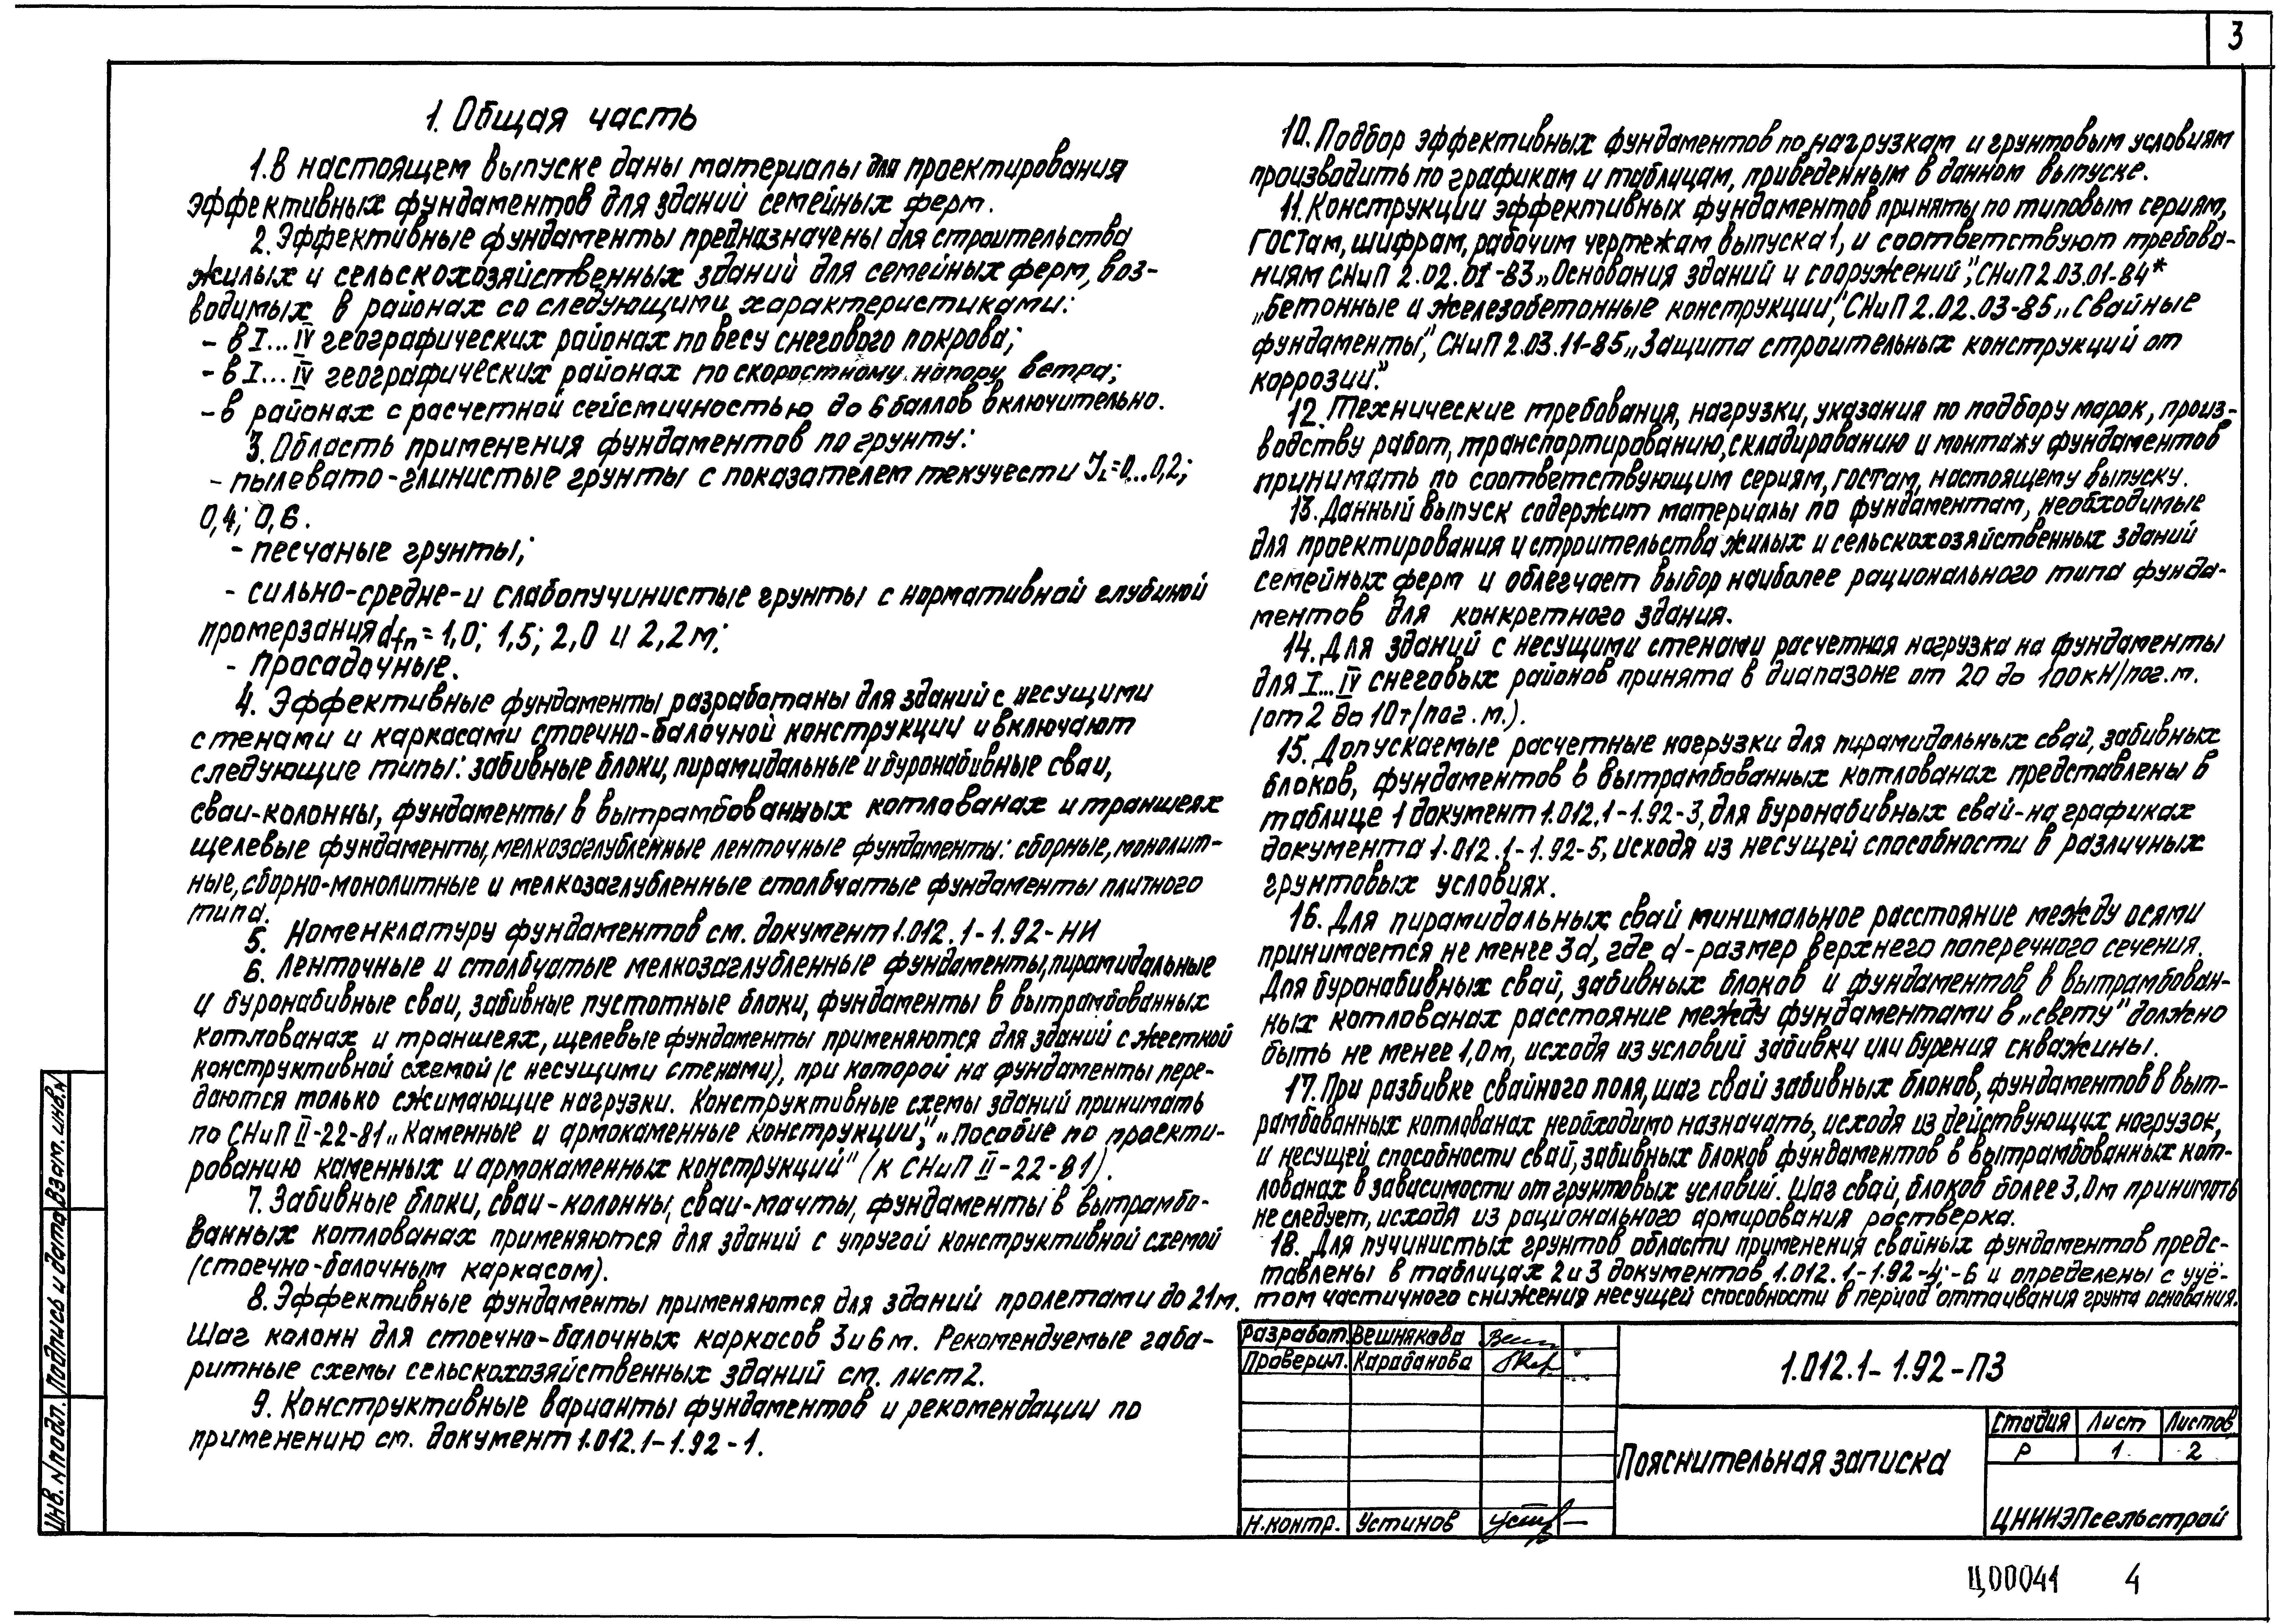 3
1. Общая часть
1. В настоящем выпуске даны материалы для проектирования
эффективных фундаментов для зданий семейных ферм.
2. Эффективные фундаменты предназначены для строительства
жилых и сельскохозяйственных зданий для семейных ферм, воз-
водимых в районах со следующими характеристиками:
- в I... IV географических районах по весу снегового покрова;
- в I... IV географических районах по скоростному напору ветра;
- в районах с расчетной сейсмичностью до 6 баллов включительно.
3. Область применения фундаментов по грунту:
- пылевато-глинистые грунты с показателем текучести JL=0...0,2;
0,4; 0,6.
- песчаные грунты;
- сильно-средне-и слабопучинистые грунты с нормативной глубиной
промерзания dfn = 1,0; 1,5; 2,0 и 2,2 м;
- просадочные.
4. Эффективные фундаменты разработаны для зданий с несущими
стенами и каркасами стоечно-балочной конструкции и включают
следующие типы: забивные блоки, пирамидальные и буронабивные сваи,
сваи-колонны, фундаменты в вытрамбованных котлованах и траншеях
щелевые фундаменты, мелкозаглубленные ленточные фундаменты: сборные, монолит-
ные, сборно-монолитные и мелкозаглубленные столбчатые фундаменты плитного
типа.
5. Номенклатуру фундаментов см. документ 1.012.1-1.92-НИ
6. Ленточные и столбчатые мелкозаглубленные фундаменты, пирамидальные
и буронабивные сваи, забивные пустотные блоки, фундаменты в вытрамбованных
котлованах и траншеях, щелевые фундаменты применяются для зданий с жесткой
конструктивной схемой (с несущими стенами), при которой на фундаменты пере-
даются только сжимающие нагрузки. Конструктивные схемы зданий принимать
по СНиП II-22-81 „Каменные и армокаменные конструкции", „Пособие по проекти-
рованию каменных и армокаменных конструкций" (к СНиП II-22-81).
7. Забивные блоки, сваи-колонны, сваи-мачты, фундаменты в вытрамбо-
ванных котлованах применяются для зданий с упругой конструктивной схемой
(стоечно-балочным каркасом).
8. Эффективные фундаменты применяются для зданий пролетами до 21 м.
Шаг колонн для стоечно-балочных каркасов 3 и 6 м. Рекомендуемые габа-
ритные схемы сельскохозяйственных зданий см. лист 2.
9. Конструктивные варианты фундаментов и рекомендации по
применению см. документ 1.012.1-1.92-1.
10. Подбор эффективных фундаментов по нагрузкам и грунтовым условиям
производить по графикам и таблицам, приведенным в данном выпуске.
11. Конструкции эффективных фундаментов приняты по типовым сериям,
ГОСТам, шифрам, рабочим чертежам выпуска 1, и соответствуют требова-
ниям СНиП 2.02.01-83 „Основания зданий и сооружений", СНиП 2.03.01-84*
„Бетонные и железобетонные конструкции", СНиП 2.02.03-85 „Свайные
фундаменты", СНиП 2.03.11-85 „Защита строительных конструкций от
коррозии".
12. Технические требования, нагрузки, указания по подбору марок, произ-
водству работ, транспортированию, складированию и монтажу фундаментов
принимать по соответствующим сериям, ГОСТам, настоящему выпуску.
13. Данный выпуск содержит материалы по фундаментам, необходимые
для проектирования и строительства жилых и сельскохозяйственных зданий
семейных ферм и облегчает выбор наиболее рационального типа фунда-
ментов для конкретного здания.
14. Для зданий с несущими стенами расчетная нагрузка на фундаменты
для I... IV снеговых районов принята в диапазоне от 20 до 100 кН/пог.м.
(от 2 до 10т/пог.м.).
15. Допускаемые расчетные нагрузки для пирамидальных свай, забивных
блоков, фундаментов в вытрамбованных котлованах представлены в
таблице 1 документ 1.012.1-1.92-3, для буронабивных свай-на графиках
документа 1.012.1-1.92-5, исходя из несущей способности в различных
грунтовых условиях.
16. Для пирамидальных свай минимальное расстояние между осями
принимается не менее 3d, где d-размер верхнего поперечного сечения.
Для буронабивных свай, забивных блоков и фундаментов в вытрамбован-
ных котлованах расстояние между фундаментами в „свету" должно
быть не менее 1,0м, исходя из условий забивки или бурения скважины.
17. При разбивке свайного поля, шаг свай забивных блоков, фундаментов в выт-
рамбованных котлованах необходимо назначать, исходя из действующих нагрузок,
и несущей способности свай, забивных блоков фундаментов в вытрамбованных кот-
лованах в зависимости от грунтовых условий. Шаг свай, блоков более 3,0м принимать
не следует, исходя из рационального армирования ростверка.
18. Для пучинистых грунтов области применения свайных фундаментов предс-
тавлены в таблицах 2 и 3 документов 1.012.1-1.92-4; -6 и определены с учё-
том частичного снижения несущей способности в период оттаивания грунта основания.
Разработ. Вешнякова
Проверил. Карабанова
Н.контр. Устинов
1.012.1-1.92-ПЗ
Пояснительная записка
Стадия Лист Листов
Р 1 2
ЦНИИЭПсельстрой
Инв. N подл. Подпись и дата Взам. инв. N
Ц00041 4